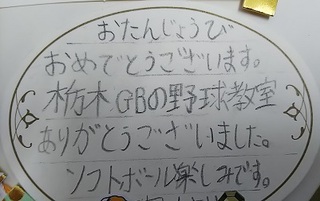 おたんじょうび
おめでとうございます。
栃木GBの野球教室
ありがとうございました。
ソフトボール楽しみです。